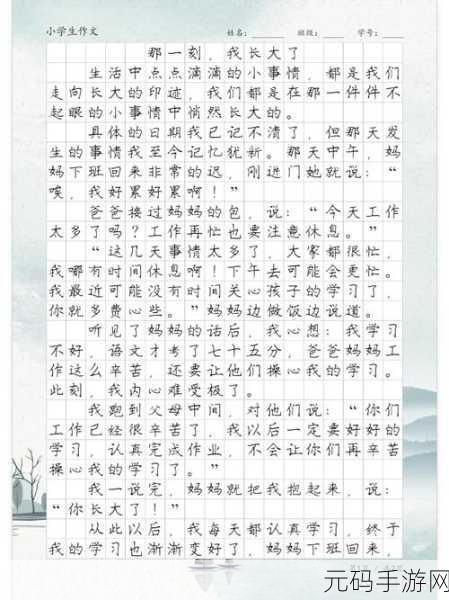 小学生作文 姓名: 班级: 学号:
那一刻，我长大了
生活中点点滴滴的小事情，都是我们
走向长大的印迹，我们都是在那一件件不
起眼的小事情中悄然长大的。
具体的日期我已记不清了，但那天发
生的事情我至今记忆犹新。那天中午，妈
妈下班回来非常的迟，刚进门她就说：“
唉，我好累好累啊！”
爸爸接过妈妈的包，说：“今天工作
太多了吗？工作再忙也要注意休息。”
“这几天事情太多了，大家都很忙，
我哪有时间休息啊！下午去可能会更忙。
我最近可能没有时间关心孩子的学习了，
你就多费心些。”妈妈边做饭边说道。
听见了妈妈的话后，我心想：我学习
不好，语文才考了七十五分，爸爸妈妈工
作这么辛苦，还要让他们操心我的学习。
此刻，我内心难受极了。
我跑到父母中间，对他们说：“你们
工作已经很辛苦了，我以后一定要好好的
学习，认真完成作业，不会让你们再辛苦
操心我的学习了。”
我一说完，妈妈就把我抱起来，说：
“你长大了！”
从此以后，我每天都认真学习，终于
我的学习也渐渐变好了，妈妈下班回来，
元码手游网